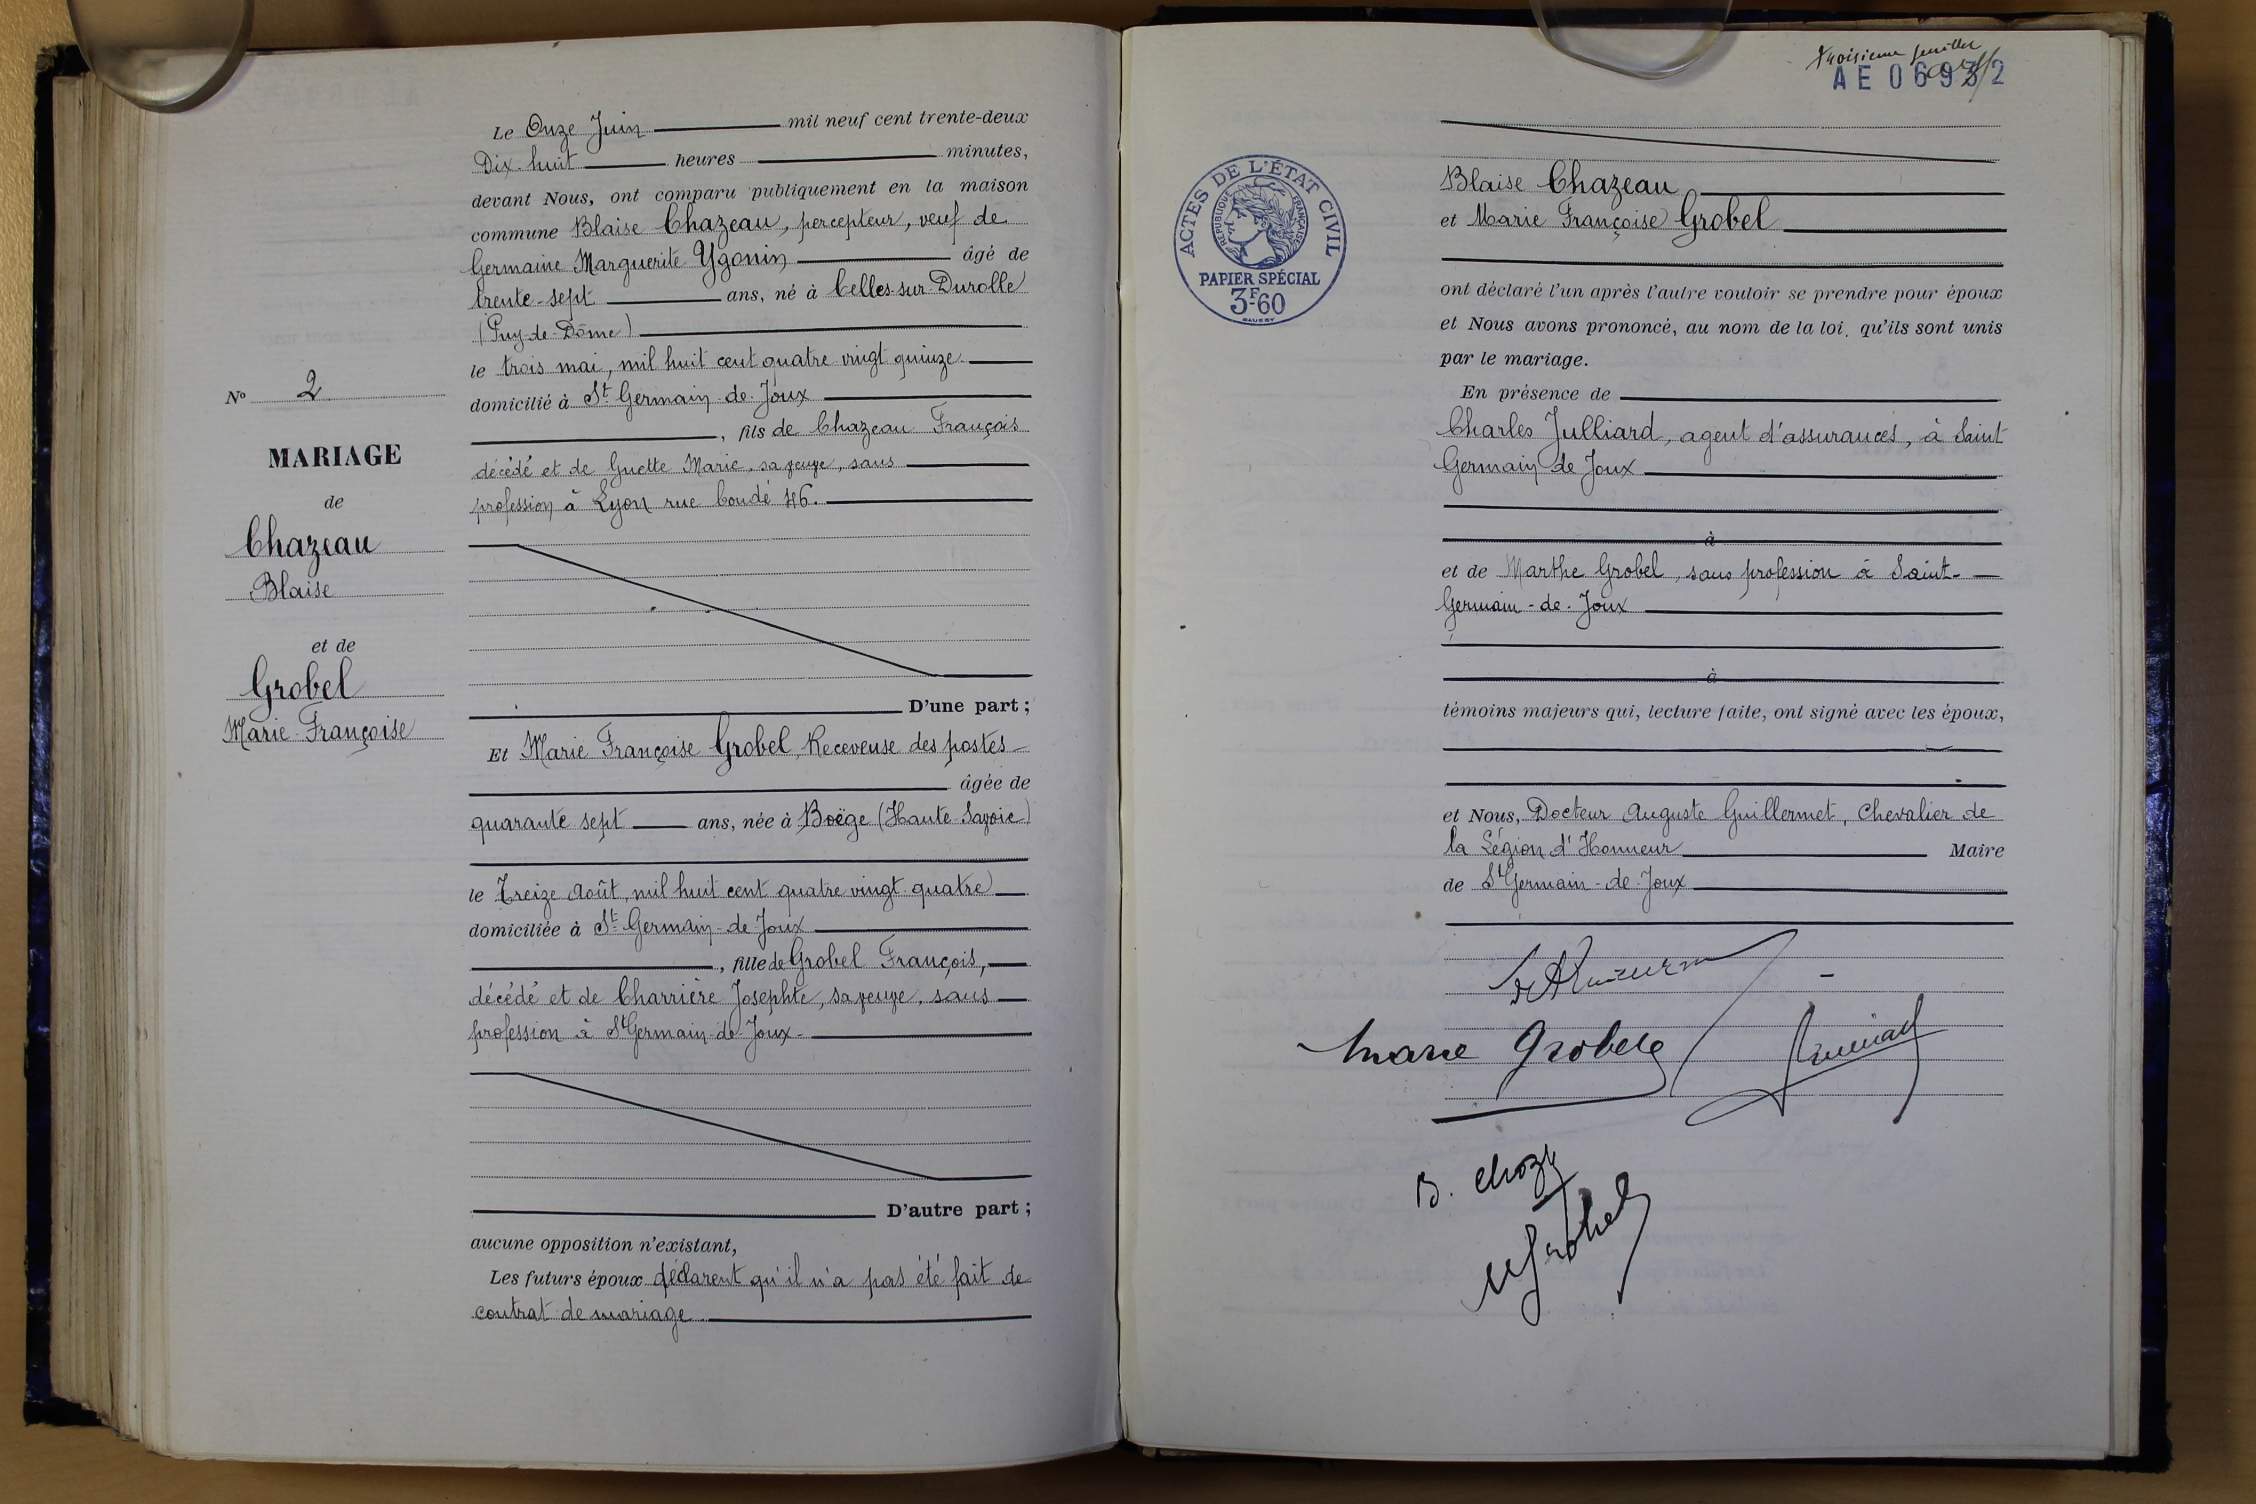 Le Onze Juin mil neuf cent trente-deux
Dix-huit heures minutes,
devant Nous, ont comparu publiquement en la maison
commune Blaise Chazeau, percepteur, veuf de
Germaine Marguerite Ygonin âgé de
trente-sept ans, né à Celles-sur-Durolle
(Puy-de-Dôme)
le trois mai, mil huit cent quatre vingt quinze
domicilié à St Germain-de-Joux
, fils de Chazeau François
décédé et de Guette Marie, sa veuve, sans
profession à Lyon rue Condé 46.
D'une part ;
Et Marie Françoise Grobel, Receveuse des postes
âgée de
quarante sept ans, née à Boëge (Haute-Savoie)
le Treize Août, mil huit cent quatre vingt quatre
domiciliée à St Germain-de-Joux
, fille de Grobel François,
décédé et de Charrière Josephte, sa veuve, sans
profession à St Germain-de-Joux
D'autre part ;
aucune opposition n'existant,
Les futurs époux déclarent qu'il n'a pas été fait de
contrat de mariage
No 2
MARIAGE
de
Chazeau
Blaise
et de
Grobel
Marie-Françoise
Troisième feuillet
AE 06932
ACTES DE L'ÉTAT CIVIL
RÉPUBLIQUE FRANÇAISE
PAPIER SPÉCIAL
3F60
Blaise Chazeau
et Marie Françoise Grobel
ont déclaré l'un après l'autre vouloir se prendre pour époux
et Nous avons prononcé, au nom de la loi, qu'ils sont unis
par le mariage.
En présence de
Charles Julliard, agent d'assurances, à Saint
Germain de Joux
à
et de Marthe Grobel, sans profession à Saint-
Germain-de-Joux
à
témoins majeurs qui, lecture faite, ont signé avec les époux,
et Nous, Docteur Auguste Guillermet, Chevalier de
la Légion d'Honneur Maire
de St Germain-de-Joux
Marie Grobel
B. Chaz
M Grobel